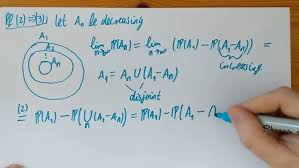 Pf (2)⇒(3) let Aₙ be decreasing
A₁
A₂
Aₙ
lim n→∞ P(Aₙ) = lim n→∞ (P(A₁) - P(A₁-Aₙ)) =
increasing
A₁ = Aₙ ∪ (A₁-Aₙ)
disjoint
(2) = P(A₁) - P(⋃ₙ(A₁-Aₙ)) = P(A₁) - P(A₁ - ⋂